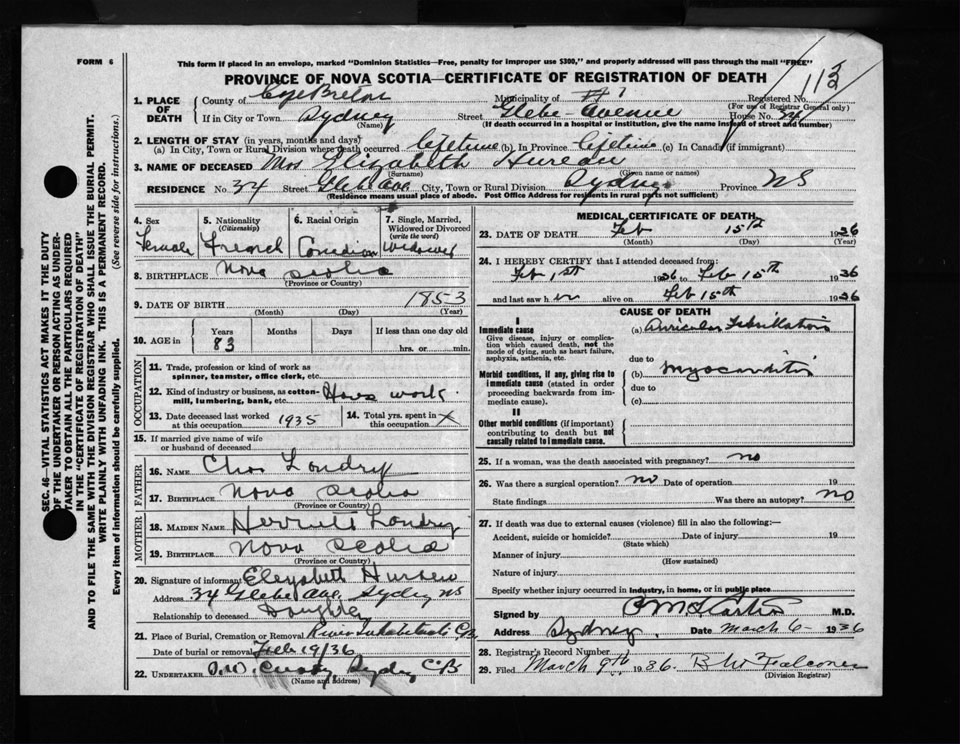 FORM 6
This form if placed in an envelope, marked "Dominion Statistics—Free, penalty for improper use $300," and properly addressed will pass through the mail "FREE"
PROVINCE OF NOVA SCOTIA—CERTIFICATE OF REGISTRATION OF DEATH
112
1. PLACE OF DEATH
County of Cape Breton Municipality of # 1 Registered No.
(For use of Registrar General only)
If in City or Town Sydney Street Glebe Avenue House No. 34
(Name) (If death occurred in a hospital or institution, give its name instead of street and number)
2. LENGTH OF STAY (in years, months and days)
(a) In City, Town or Rural Division where death occurred lifetime (b). In Province lifetime (c) In Canada (if immigrant)
3. NAME OF DECEASED Mrs Elizabeth Hureau
(Surname) (Given name or names)
RESIDENCE No. 34 Street Glebe Ave City, Town or Rural Division Sydney Province NS
(Residence means usual place of abode. Post Office Address for residents in rural parts not sufficient)
SEC. 46—VITAL STATISTICS ACT MAKES IT THE DUTY
OF THE UNDERTAKER OR PERSON ACTING AS UNDER-
TAKER TO OBTAIN ALL THE PARTICULARS REQUIRED
IN THE "CERTIFICATE OF REGISTRATION OF DEATH"
AND TO FILE THE SAME WITH THE DIVISION REGISTRAR WHO SHALL ISSUE THE BURIAL PERMIT.
WRITE PLAINLY WITH UNFADING INK. THIS IS A PERMANENT RECORD.
Every item of information should be carefully supplied. (See reverse side for instructions.)
4. Sex 5. Nationality 6. Racial Origin 7. Single, Married,
(Citizenship) Widowed or Divorced
(write the word)
Female French Canadian Widower
8. BIRTHPLACE Nova Scotia
(Province or Country)
9. DATE OF BIRTH 1853
(Month) (Day) (Year)
10. AGE in Years Months Days If less than one day old
83 hrs. or min.
OCCUPATION
11. Trade, profession or kind of work as
spinner, teamster, office clerk, etc.
12. Kind of industry or business, as cotton-
mill, lumbering, bank, etc. Hous work
13. Date deceased last worked
at this occupation 1935
14. Total yrs. spent in
this occupation X
15. If married give name of wife
or husband of deceased
FATHER
16. NAME Chas Londry
17. BIRTHPLACE Nova Scotia
(Province or Country)
MOTHER
18. MAIDEN NAME Herriett Londry
19. BIRTHPLACE Nova Scotia
(Province or Country)
20. Signature of informant Elezabeth Hureau
Address 34 Glebe Ave Sydney NS
Relationship to deceased Daughter
21. Place of Burial, Cremation or Removal River C.B.
Date of burial or removal Feb 19/36
22. UNDERTAKER Sydney C.B.
(Name and Address)
MEDICAL CERTIFICATE OF DEATH
23. DATE OF DEATH Feb 15th 1936
(Month) (Day) (Year)
24. I HEREBY CERTIFY that I attended deceased from:
Feb 1st 1936 to Feb 15th 1936
and last saw her alive on Feb 15th 1936
CAUSE OF DEATH
I
Immediate cause (a) Auricular Fibrillation
Give disease, injury or complica-
tion which caused death, not the
mode of dying, such as heart failure,
asphyxia, asthenia, etc.
due to
Morbid conditions, if any, giving rise to
immediate cause (stated in order
proceeding backwards from im-
mediate cause).
(b) Myocarditis
due to
(c)
II
Other morbid conditions (if important)
contributing to death but not
causally related to immediate cause.
25. If a woman, was the death associated with pregnancy? no
26. Was there a surgical operation? no Date of operation 19
State findings Was there an autopsy? no
27. If death was due to external causes (violence) fill in also the following:—
Accident, suicide or homicide? Date of injury 19
(State which)
Manner of injury
(How sustained)
Nature of injury
Specify whether injury occurred in industry, in home, or in public place
Signed by M.D.
Address Sydney Date March 6 1936
28. Registrar's Record Number
29. Filed March 9th 1936. B W Falconer
(Division Registrar)